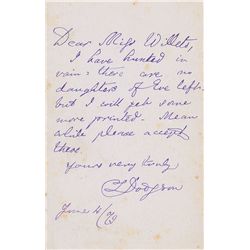 Dear Miss Willets,
I have hunted in
vain: there are no
daughters of Eve left:
but I will get some
more printed. Mean
while please accept
these.
Yours very truly
CLDodgson
June 4/